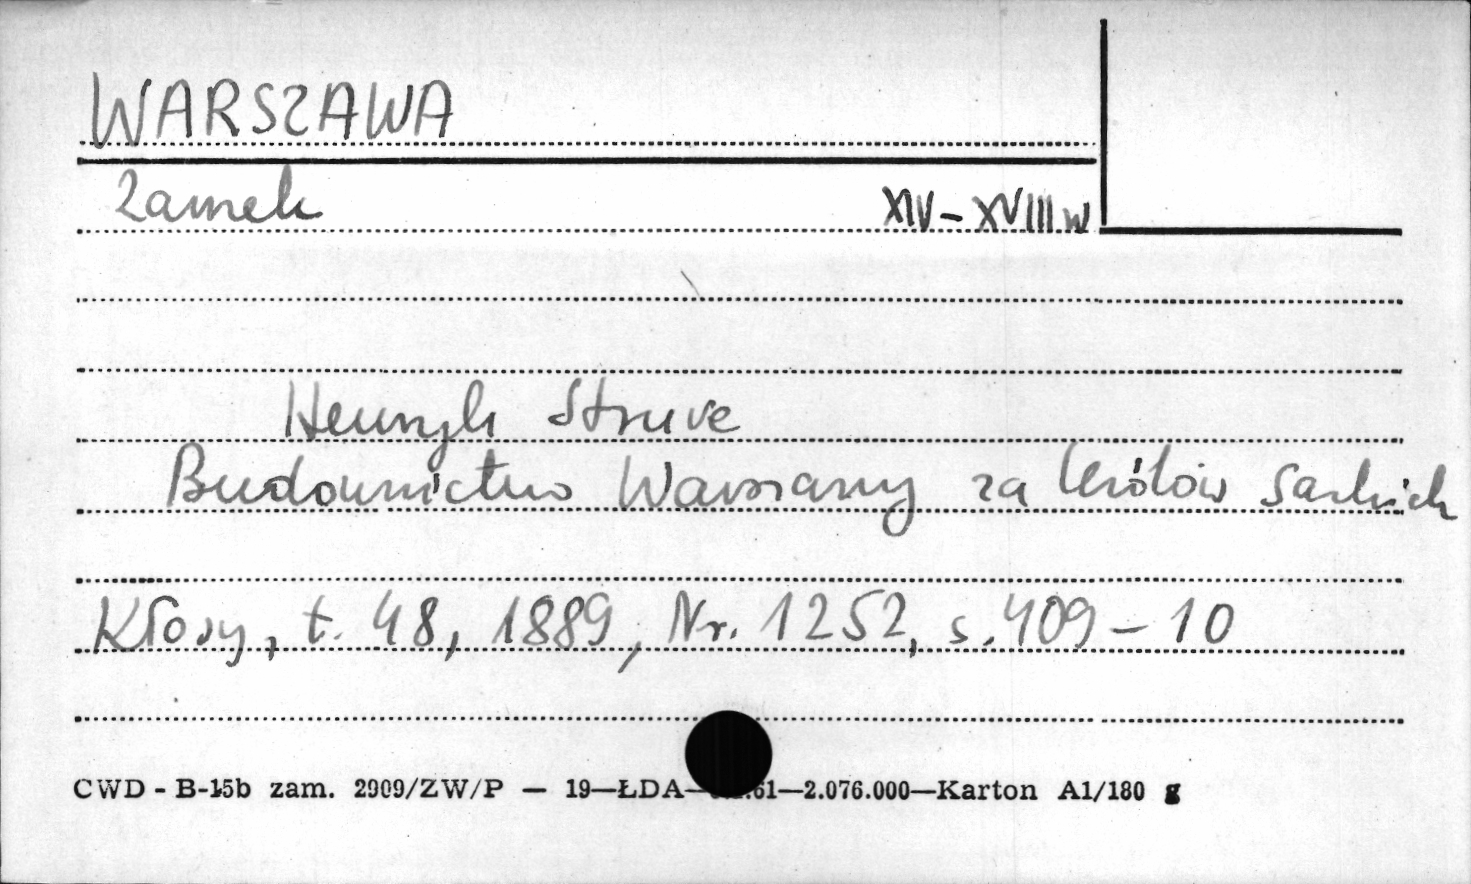 WARSZAWA
Zamek XIV-XVIII w
Henryk Struve
Budownictwo Warszawy za królów saskich
Kłosy, t. 48, 1889, Nr. 1252, s. 409-10
CWD - B-15b zam. 2909/ZW/P — 19—ŁDA— .61—2.076.000—Karton A1/180 g